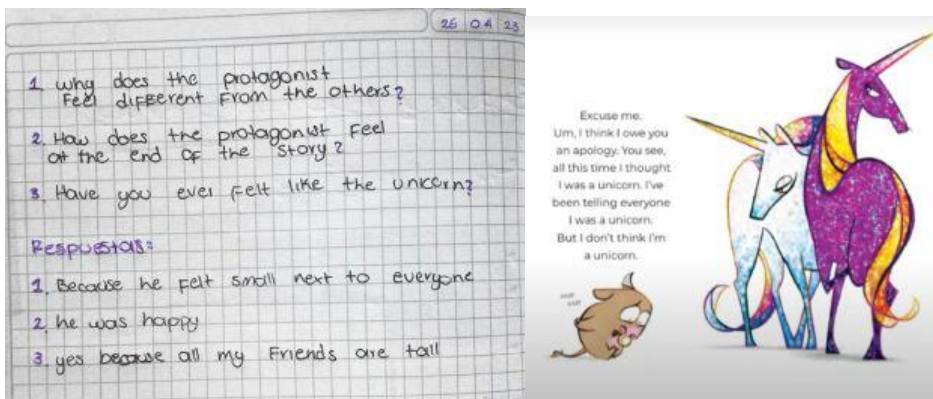 26 04 23
1. why does the protagonist
Feel different From the others?
2. How does the protagonist Feel
at the end of the story?
3. Have you ever Felt like the unicorn?
Respuestas:
1. Because he Felt small next to everyone
2. he was happy
3. yes because all my Friends are tall
Excuse me.
Um, I think I owe you
an apology. You see,
all this time I thought
I was a unicorn. I've
been telling everyone
I was a unicorn.
But I don't think I'm
a unicorn.